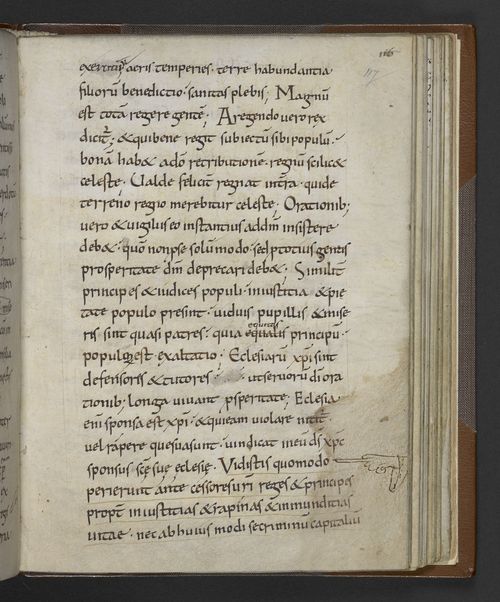 116
117
exercitus aeris temperies · terre habundantia
filiorū benedictio · sanitas plebis; Magnū
est totā regere gentē; A regendo vero rex
dicit̄; & qui bene regit subiectū sibi populū ·
bonā hab& a dō retributionē · regnū scilic&
celeste · Ualde felicit̄ regnat in t̄ra · qui de
terreno regno merebitur celeste; Orationib;
vero & vigiliis eo instantius ad dn̄m insistere
deb& · quō non p̱ se solūmodo · sed p̱ totius gentis
prosperitate dn̄m deprecari deb&; Similit̄
principes & iudices populi · in iustitia · & pie
tate populo presint · viduis pupillis & mise
ris sint quasi patres · quia equalis principū ·
equitas
populoꝝ est exaltatio; Eclesiarū xp̄i sint
defensores & tutores · ut servorū dī ora
tionib; longa vivant p̱speritate; Eclesia
enī sponsa est xp̄i · & qui eam violare nitit̄ ·
vel rapere que sua sunt · vindicat in eū ds̄ xp̄c
sponsus sc̄ę suę eclesię · Vidistis quomodo
perierunt antecessores vr̄i reges & principes
propt̄ iniustitias & rapinas & inmunditias
vitae · nec ab huius modi se criminū capitaliū